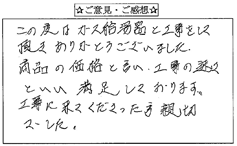 ☆ご意見・ご感想☆
この度はガス給湯器と工事をして
頂きありがとうございました。
商品の価格と言い、工事の
といい満足しております。
工事に来てくださった方親切
でした。